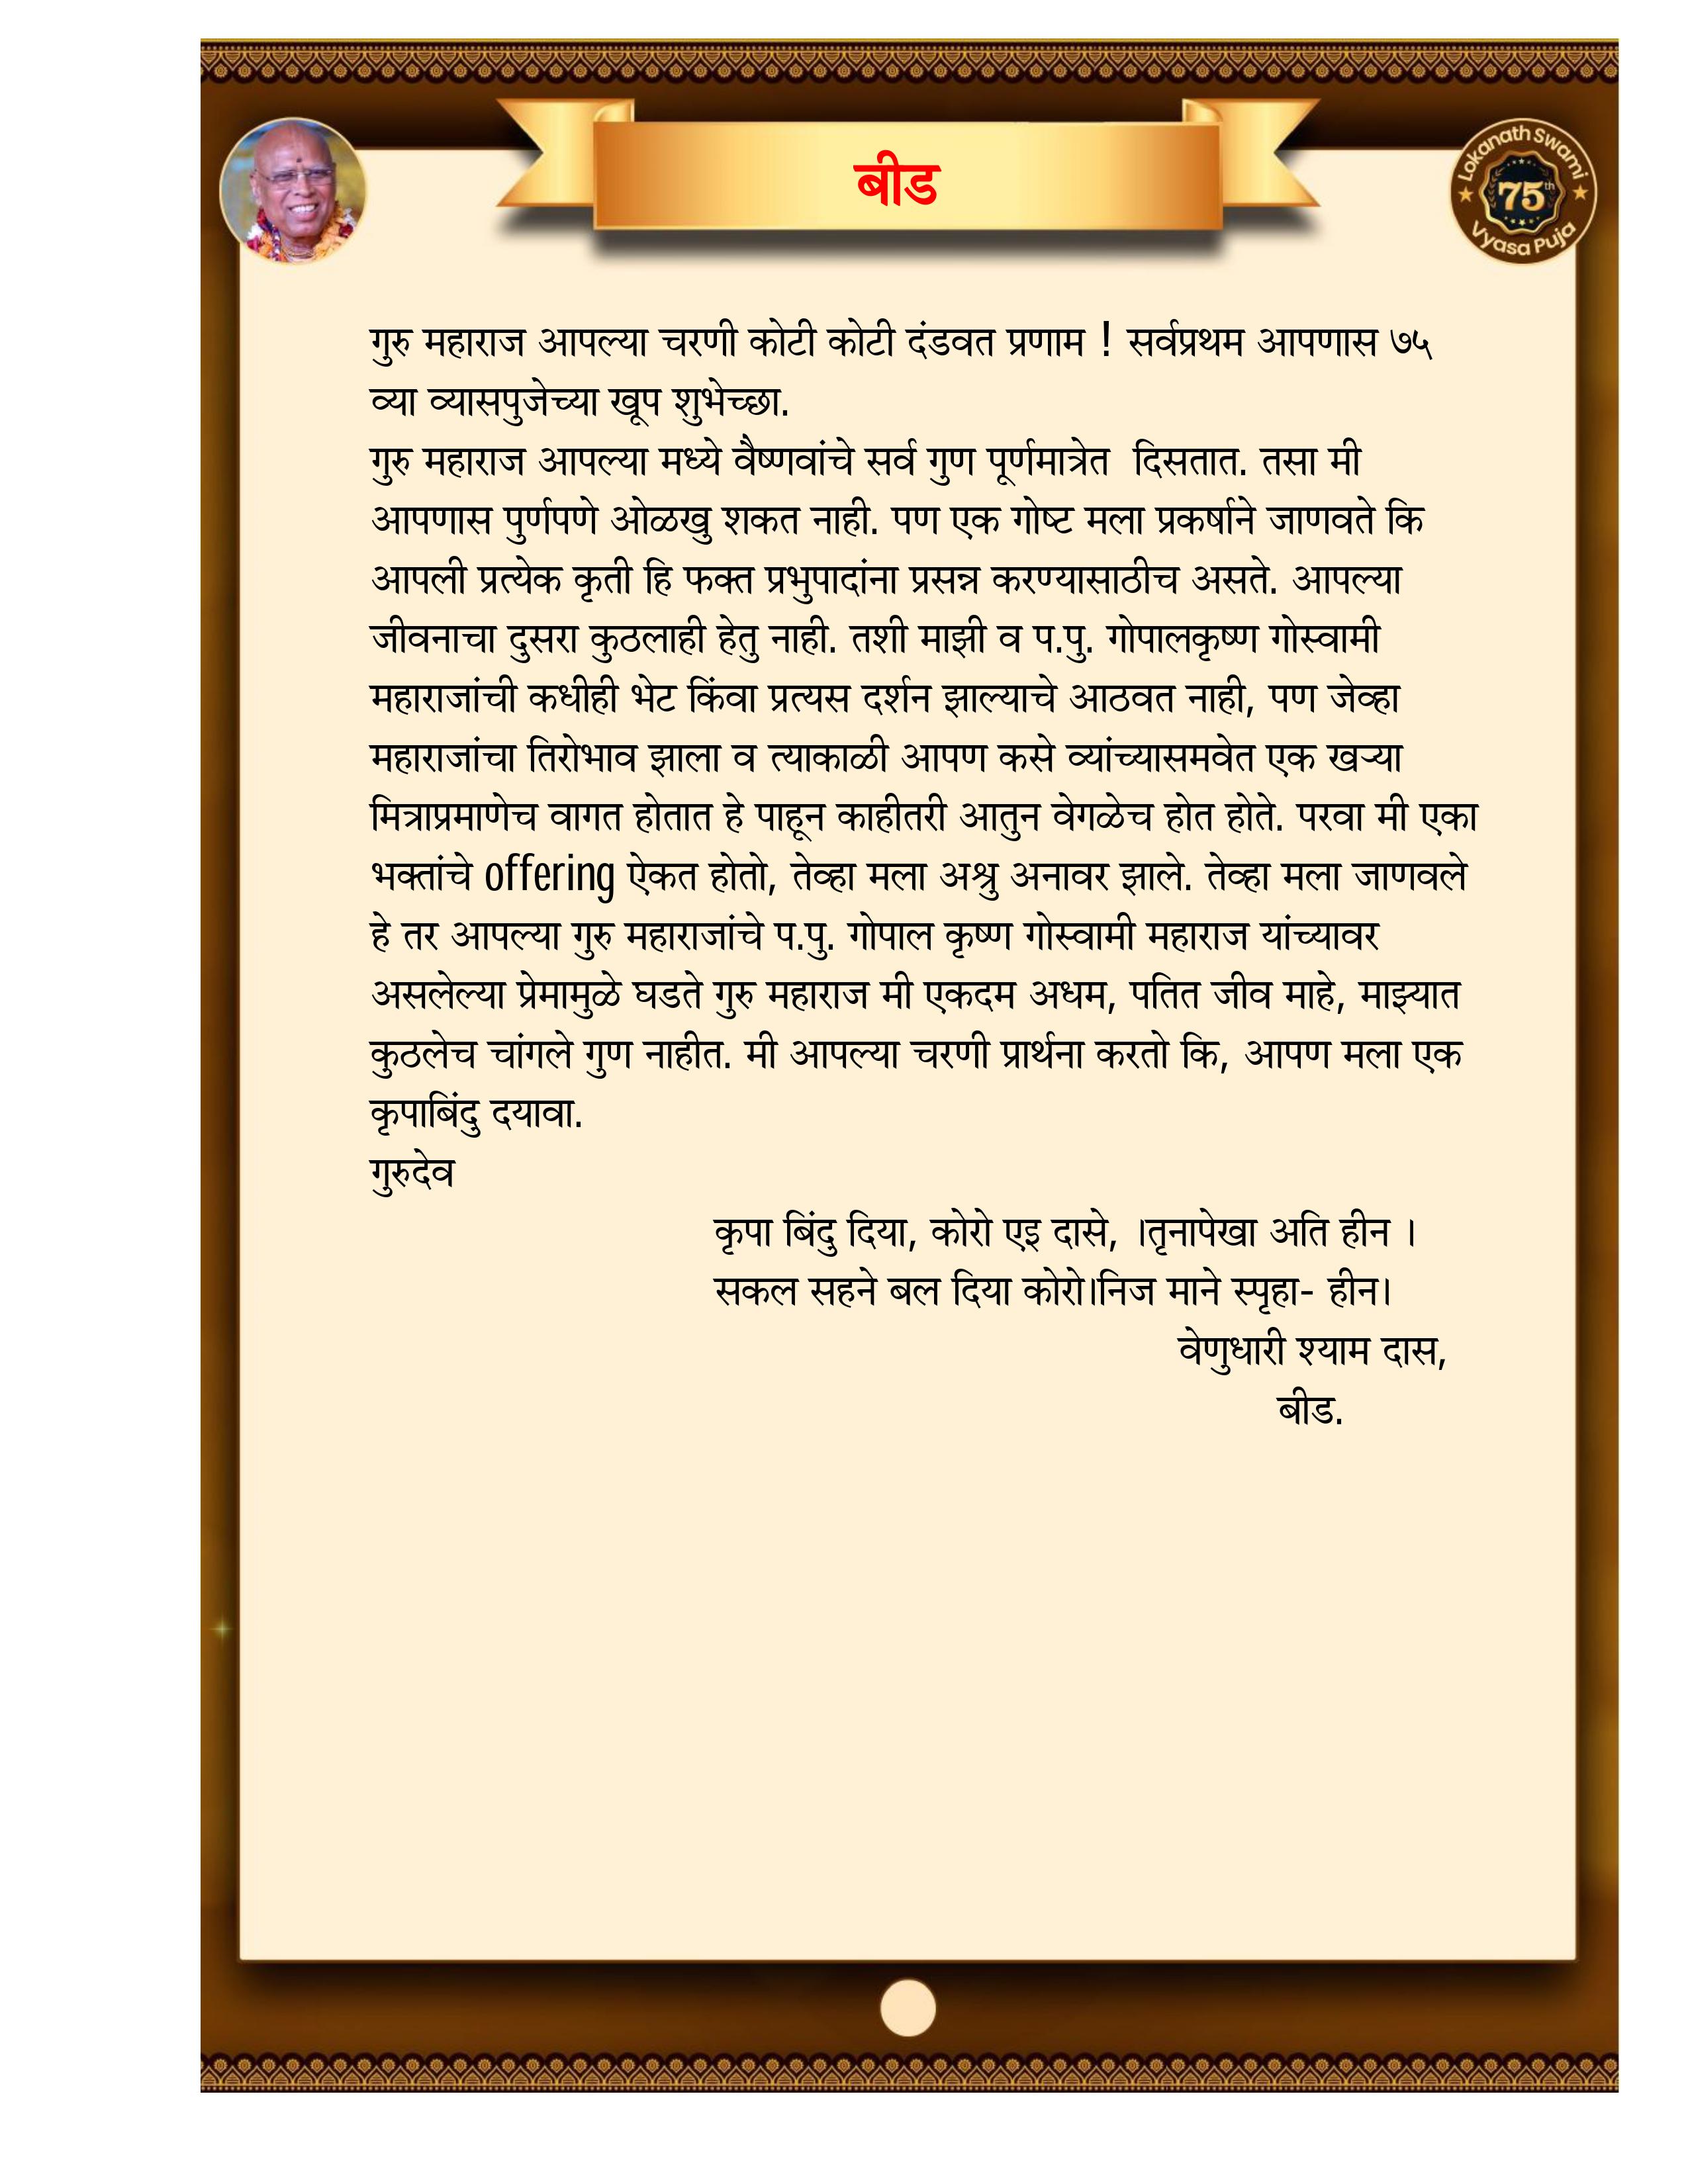 बीड
Lokanath Swami
75th
Vyasa Puja
गुरु महाराज आपल्या चरणी कोटी कोटी दंडवत प्रणाम ! सर्वप्रथम आपणास ७५
व्या व्यासपुजेच्या खूप शुभेच्छा.
गुरु महाराज आपल्या मध्ये वैष्णवांचे सर्व गुण पूर्णमात्रेत दिसतात. तसा मी
आपणास पुर्णपणे ओळखु शकत नाही. पण एक गोष्ट मला प्रकर्षाने जाणवते कि
आपली प्रत्येक कृती हि फक्त प्रभुपादांना प्रसन्न करण्यासाठीच असते. आपल्या
जीवनाचा दुसरा कुठलाही हेतु नाही. तशी माझी व प.पु. गोपालकृष्ण गोस्वामी
महाराजांची कधीही भेट किंवा प्रत्यस दर्शन झाल्याचे आठवत नाही, पण जेव्हा
महाराजांचा तिरोभाव झाला व त्याकाळी आपण कसे व्यांच्यासमवेत एक खऱ्या
मित्राप्रमाणेच वागत होतात हे पाहून काहीतरी आतुन वेगळेच होत होते. परवा मी एका
भक्तांचे offering ऐकत होतो, तेव्हा मला अश्रु अनावर झाले. तेव्हा मला जाणवले
हे तर आपल्या गुरु महाराजांचे प.पु. गोपाल कृष्ण गोस्वामी महाराज यांच्यावर
असलेल्या प्रेमामुळे घडते गुरु महाराज मी एकदम अधम, पतित जीव माहे, माझ्यात
कुठलेच चांगले गुण नाहीत. मी आपल्या चरणी प्रार्थना करतो कि, आपण मला एक
कृपाबिंदु दयावा.
गुरुदेव
कृपा बिंदु दिया, कोरो एइ दासे, ।तृनापेखा अति हीन ।
सकल सहने बल दिया कोरो।निज माने स्पृहा- हीन।
वेणुधारी श्याम दास,
बीड.